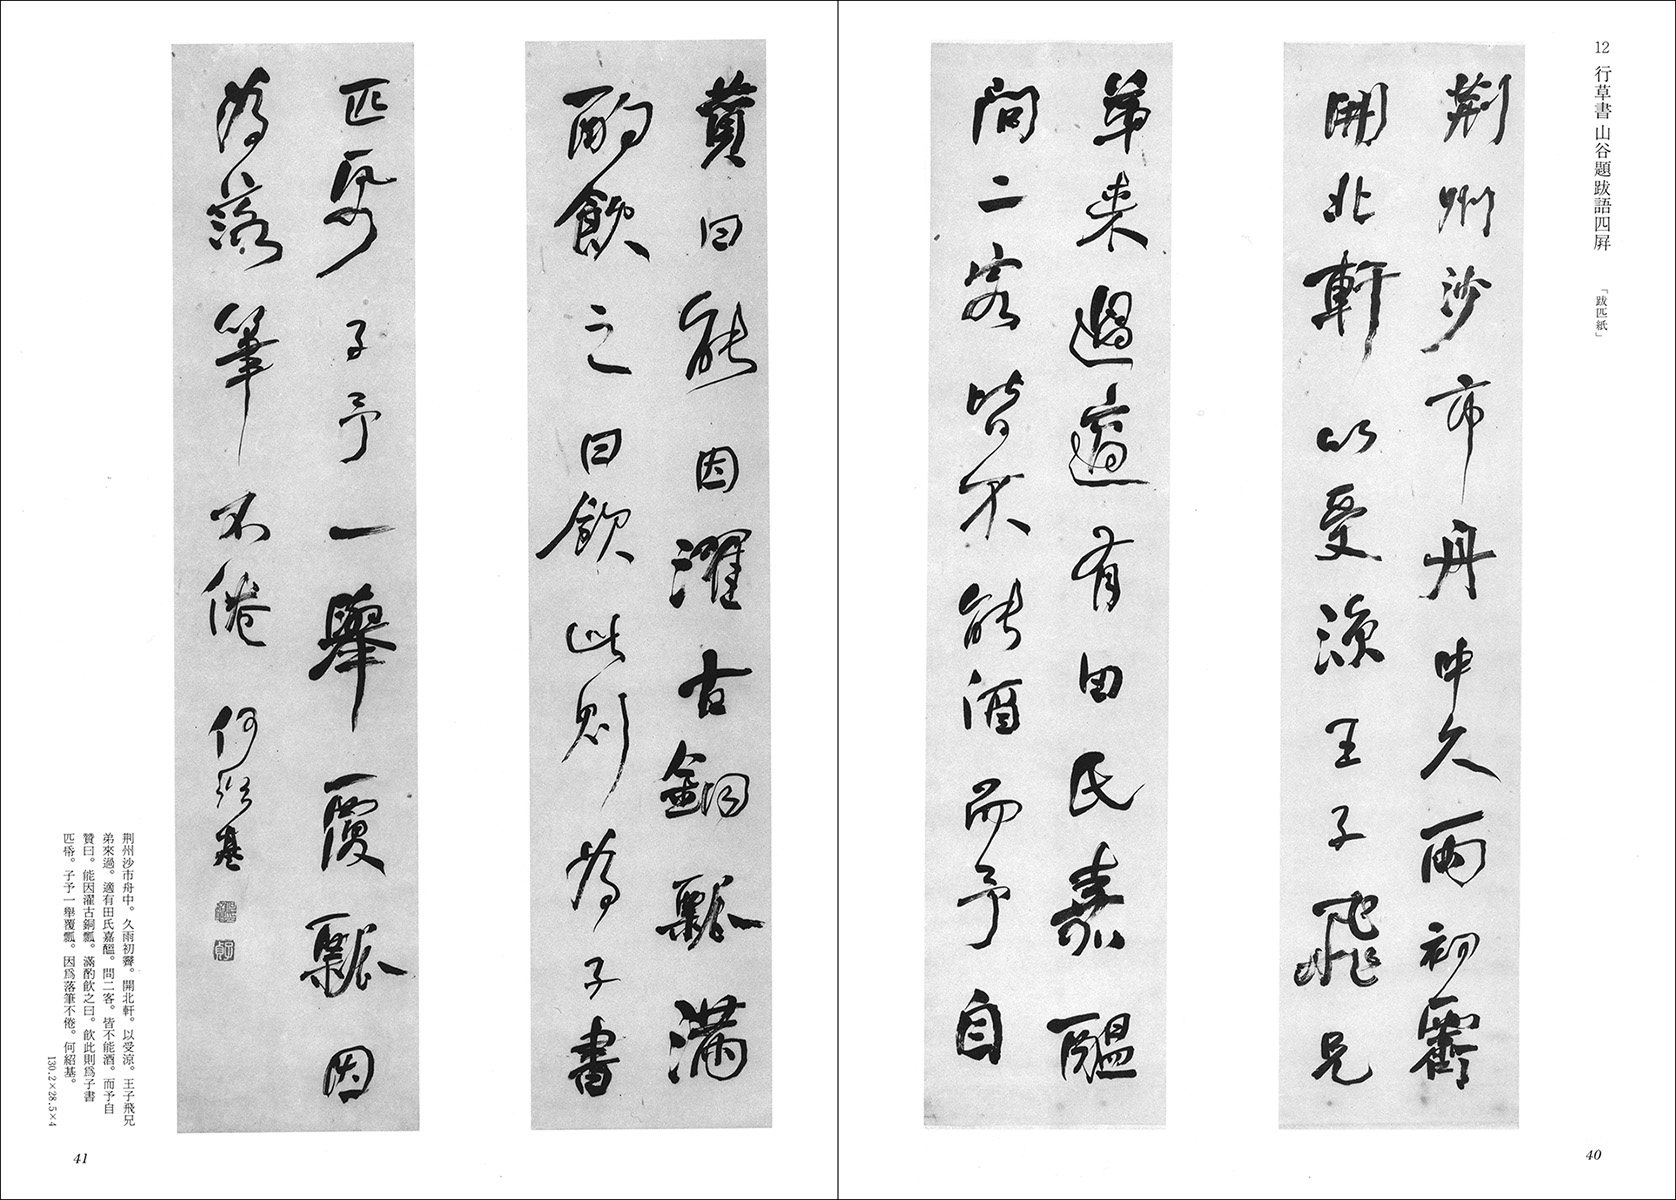 12 行草書 山谷題跋語四屏 「跋匹紙」
荆州沙市舟中久雨初霽
開北軒以受涼王子飛兄
弟来過適有田氏嘉醞
問二客皆不能酒而予自
賛曰能因濯古銅瓢满
酌飲之曰飲此則為子書
匹帋子予一舉覆瓢因
為落筆不倦 何紹基
荆州沙市舟中。久雨初霽。開北軒。以受涼。王子飛兄
弟來過。適有田氏嘉醞。問二客。皆不能酒。而予自
贊曰。能因濯古銅瓢。滿酌飲之曰。飲此則爲子書
匹帋。子予一舉覆瓢。因爲落筆不倦。何紹基。
130.2×28.5×4
40
41